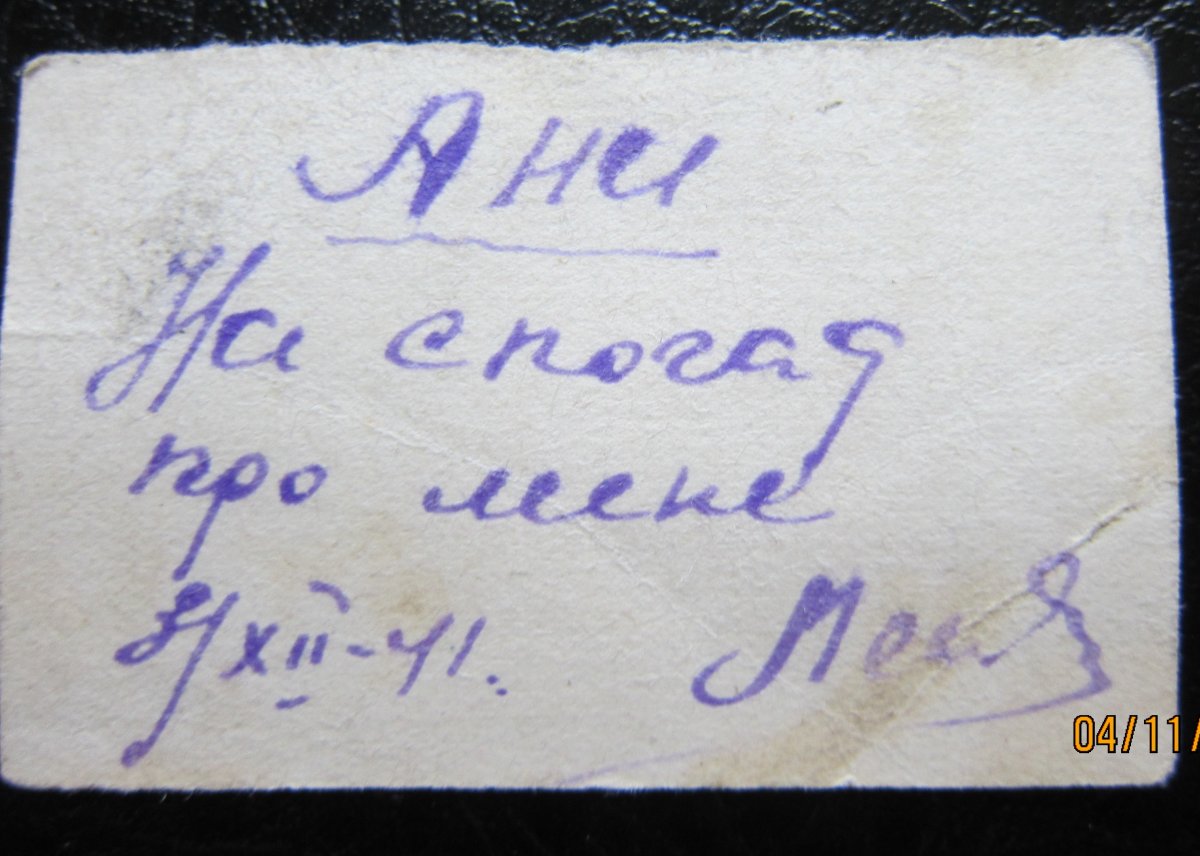 Ани
На спогад
про мене
3/XII-41.
04/11/